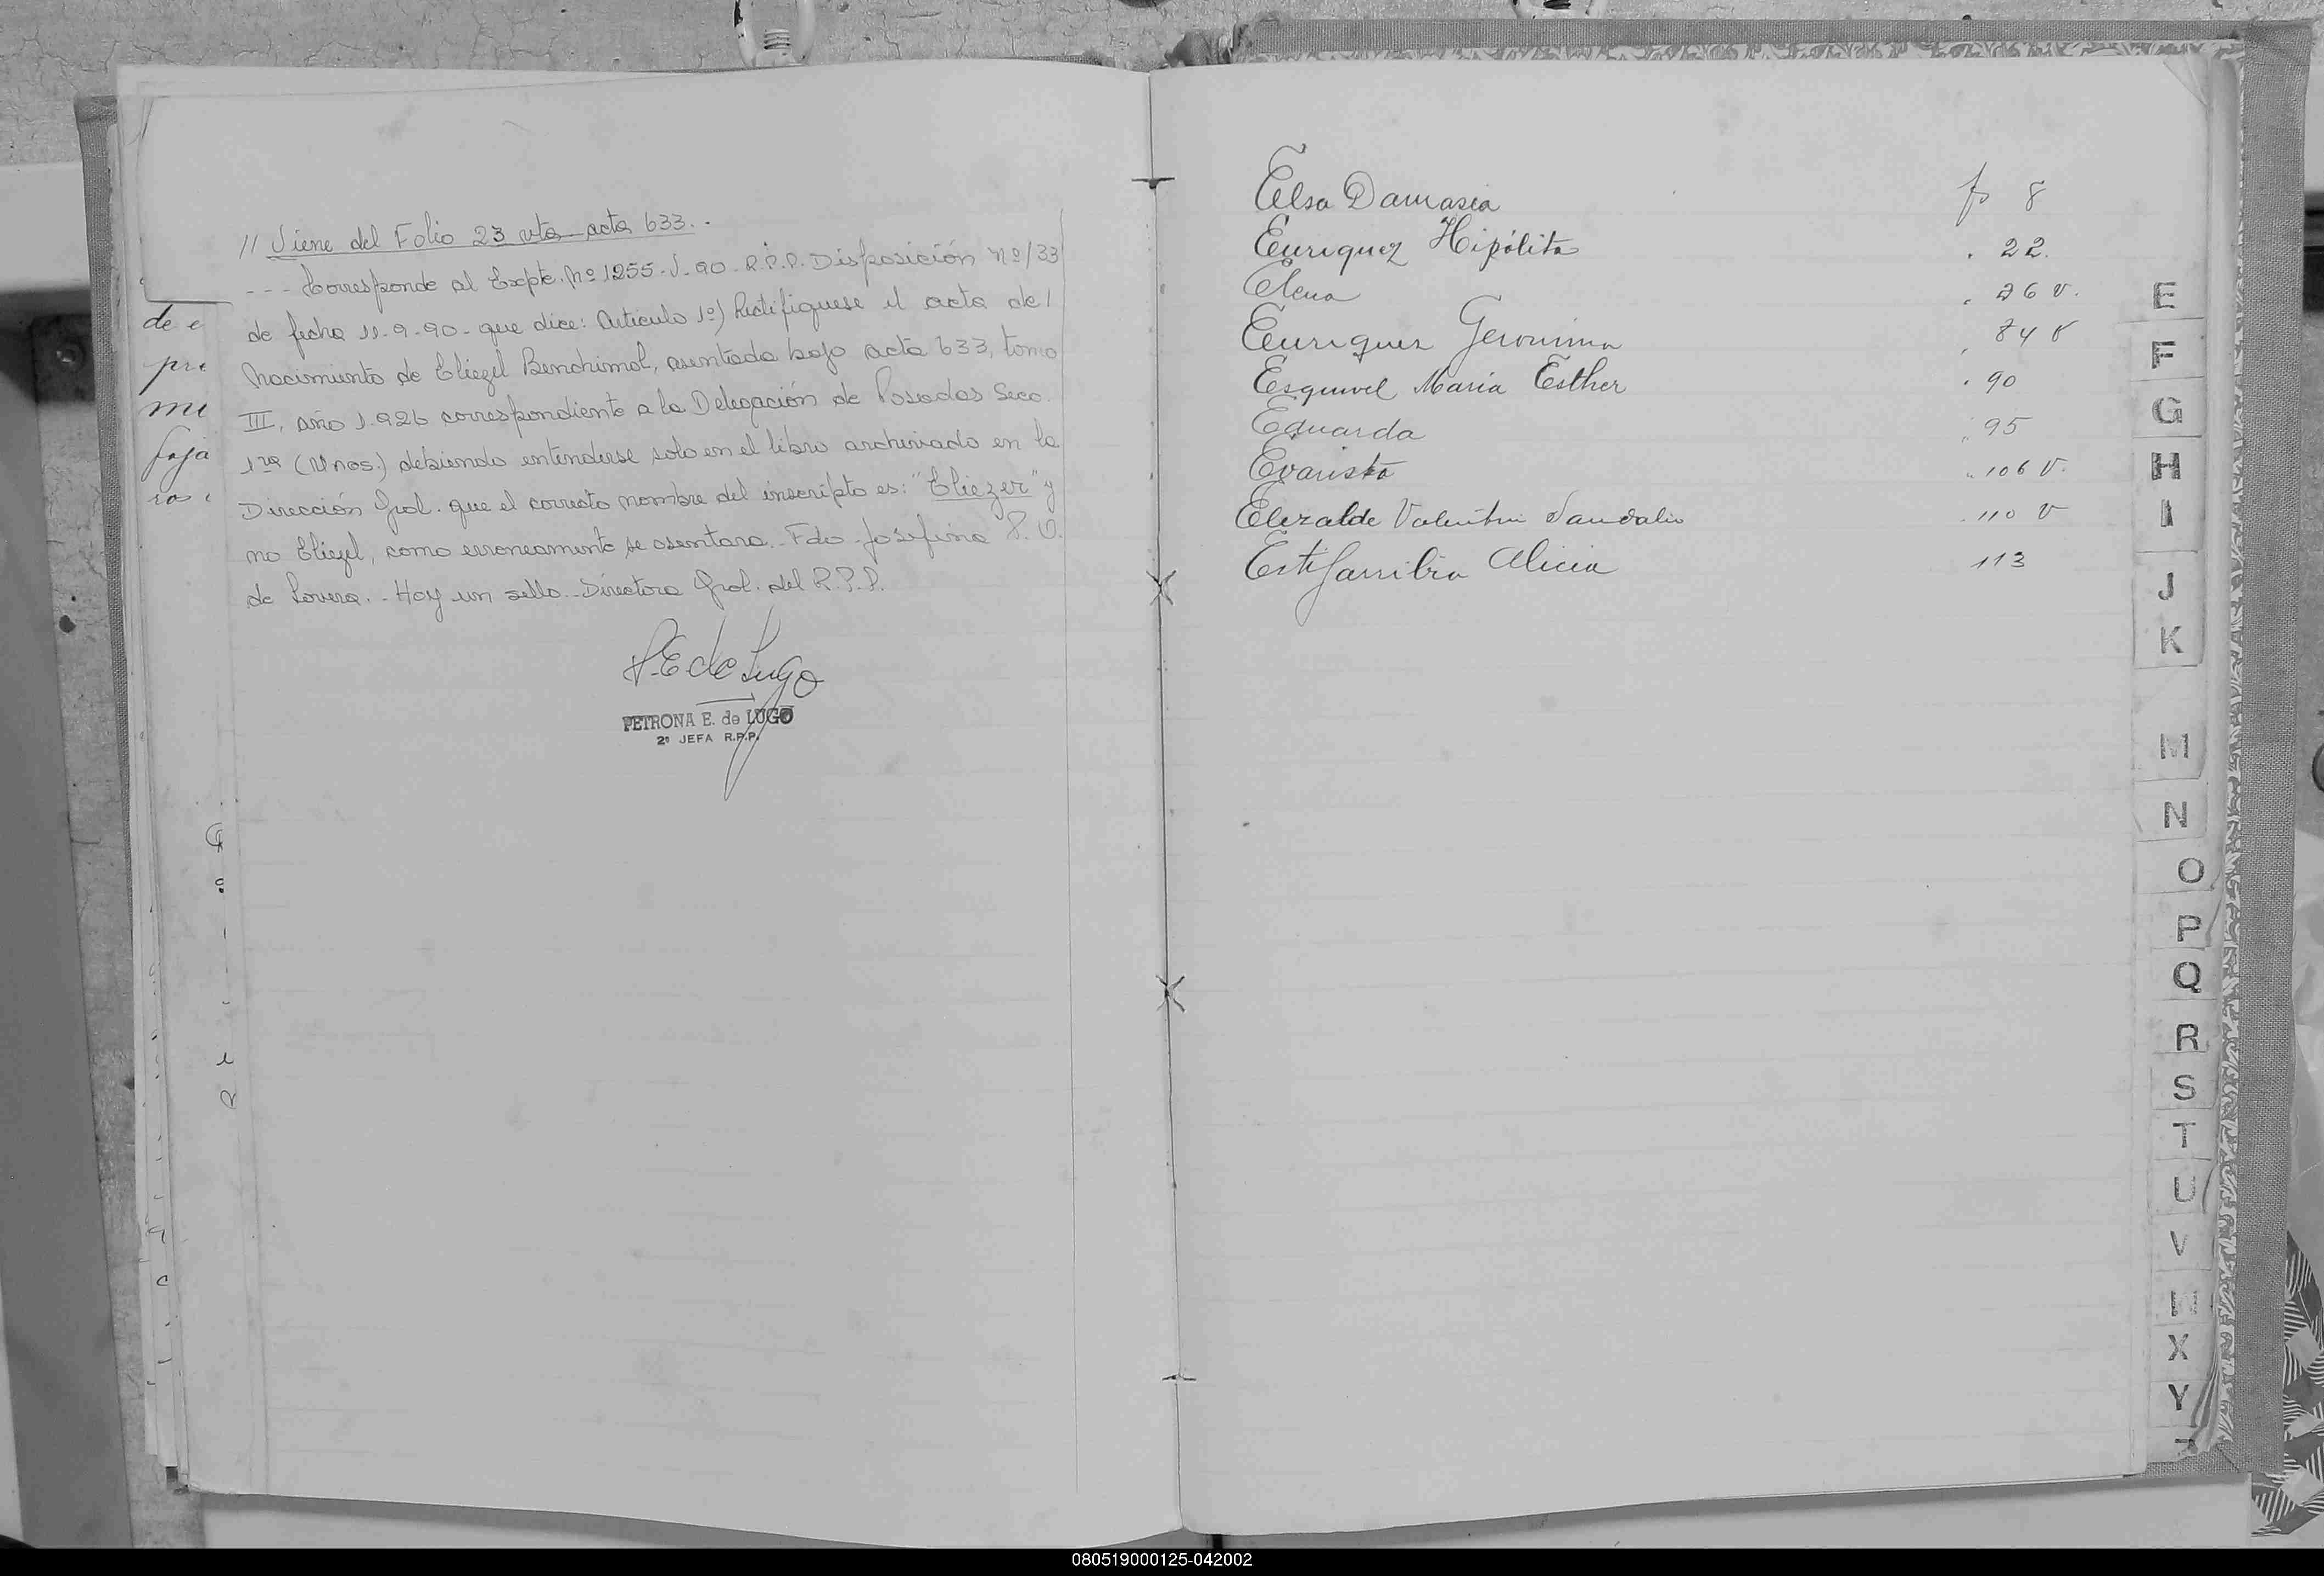 // Viene del Folio 23 vta acta 633.-
--- Corresponde al Expte. Nº 1255-J-90-R.P.P. Disposición Nº/33
de fecha 11-9-90- que dice: Artículo 1º) Rectifiquese el acta de/
Nacimiento de Eliezel Benchimol, asentada bajo acta 633, tomo
III, año 1.926 correspondiente a la Delegación de Posadas Secc.
1ra (Mnes.) debiendo entenderse solo en el libro archivado en la
Dirección Gral. que el correcto nombre del inscripto es: "Eliezer" y
no Eliezel, como erroneamente se asentara.- Fdo- Josefina P. O.
de Lovera.- Hay un sello.- Directora Gral. del R.P.P.
P.E de Lugo
PETRONA E. de LUGO
2º JEFA R.P.P.
de e
pre
mi
foja
ros
Elsa Damasia fs 8
Enriquez Hipólita . 22.
Elena . 26 v.
Enriquez Geronima . 84 v
Esquivel Maria Esther . 90
Eduarda 95
Evarista 106 v.
Elizalde Valentin Sandalio 110 v
Estigarribia Alicia 113
E
F
G
H
I
J
K
M
N
O
P
Q
R
S
T
U
V
X
Y
080519000125-042002